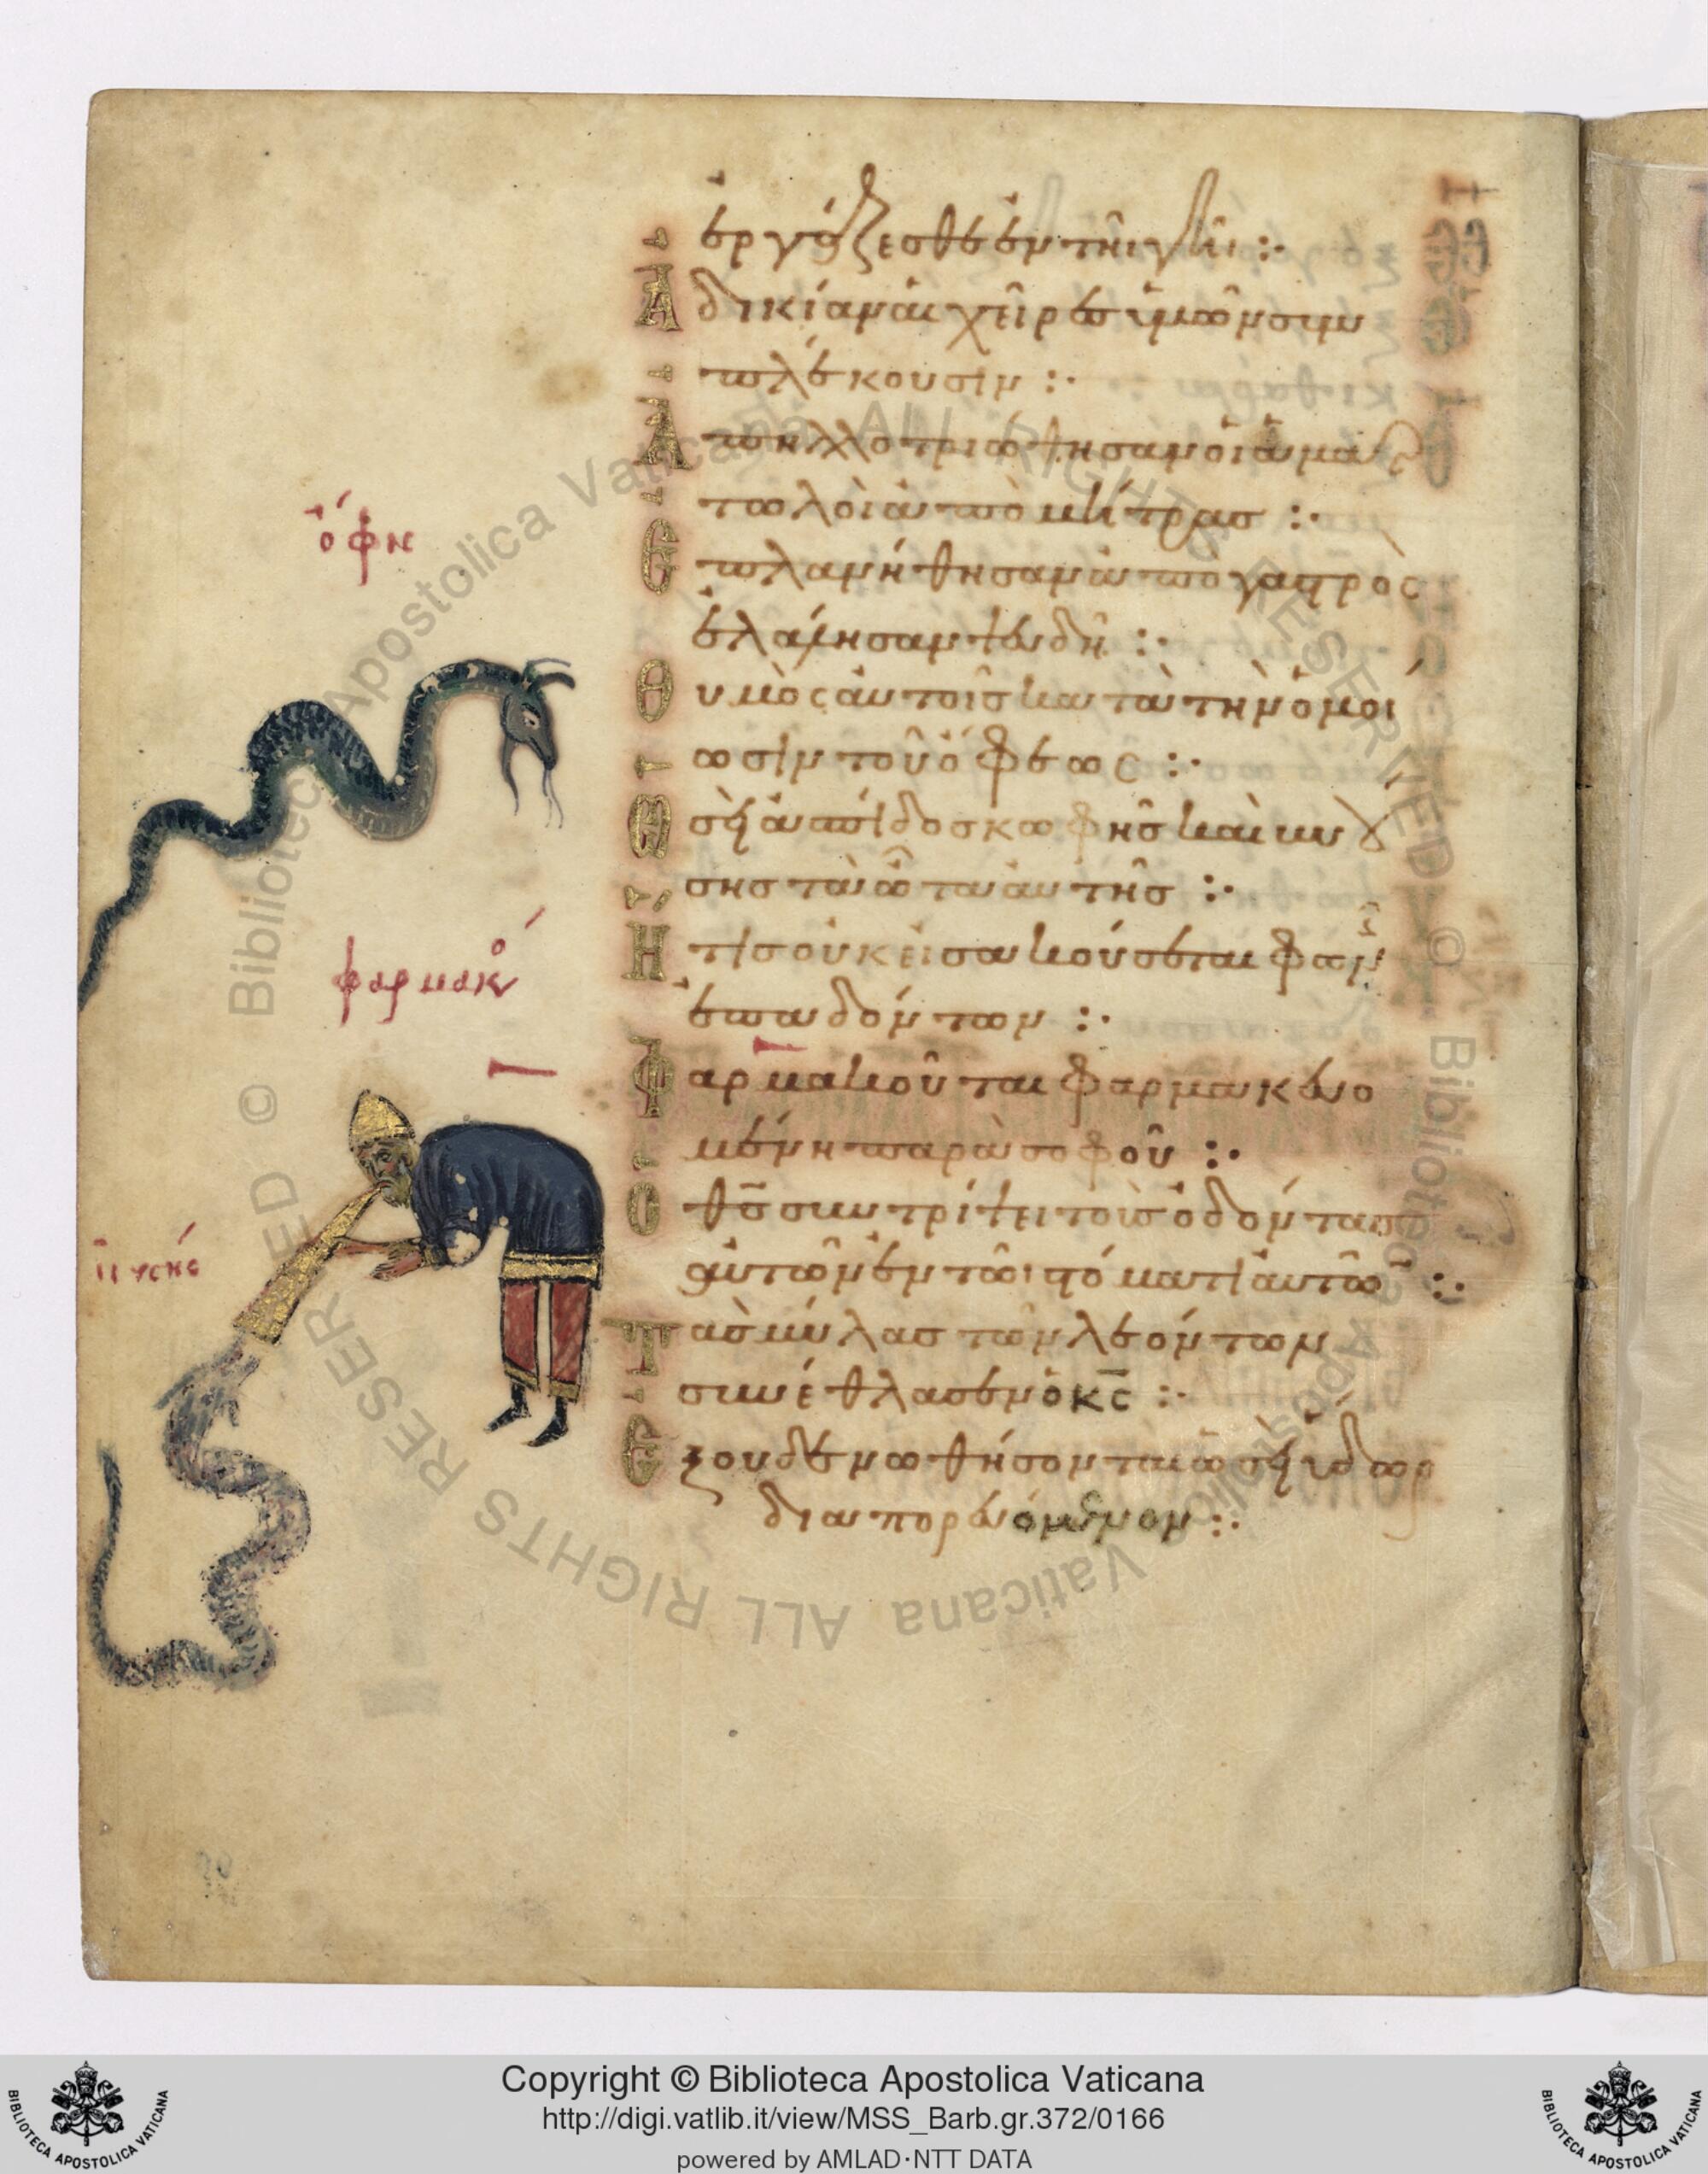 ἐργάζεσθε ἐν τῆι γῆι :·
Ἀδικίαν αἱ χεῖρες ὑμῶν συμ
πλέκουσιν :·
Ἀπηλλοτριώθησαν οἱ ἁμαρ
τωλοὶ ἀπὸ μήτρας :·
Ἐπλανήθησαν ἀπὸ γαστρὸς
ἐλάλησαν ψευδῆ :·
Θυμὸς αὐτοῖς κατὰ τὴν ὁμοί
ωσιν τοῦ ὄφεως :·
Ὡσεὶ ἀσπίδος κωφῆς καὶ βυού
σης τὰ ὦτα αὐτῆς :·
Ἥτις οὐκ εἰσακούσεται φωνῆς
ἐπαδόντων :·
Φαρμακοῦται φαρμακευο
μένη παρὰ σοφοῦ :·
Ὁ θς συντρίψει τοὺς ὀδόντας
αὐτῶν ἐν τῶι στόματι αὐτῶν :·
Τὰς μύλας τῶν λεόντων
συνέθλασεν ὁ κς :·
Ἐξουδενωθήσονται ὡσεὶ ὕδωρ
διαπορευόμενον :·
ὄφη
φαρμακό
Copyright © Biblioteca Apostolica Vaticana
http://digi.vatlib.it/view/MSS_Barb.gr.372/0166
powered by AMLAD·NTT DATA
BIBLIOTECA APOSTOLICA VATICANA
BIBLIOTECA APOSTOLICA VATICANA
© Biblioteca Apostolica Vaticana ALL RIGHTS RESERVED © Biblioteca Apostolica Vaticana ALL RIGHTS RESERVED